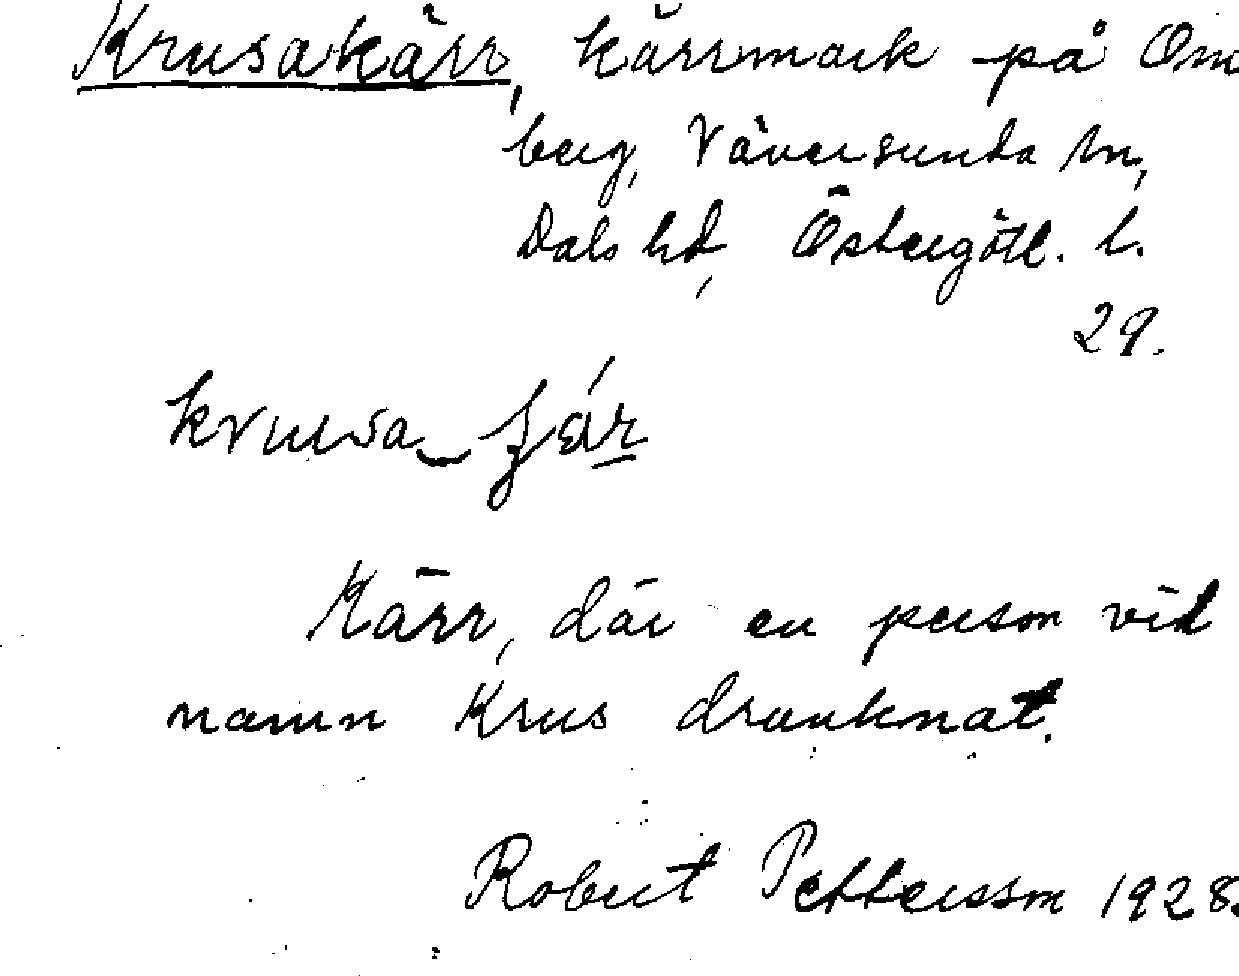 Krusakärr, kärrmark på Om
berg, Väversunda sn,
Dals hd, Östergötl. l.
29.
Kärr, där en person vid
namn Krus drunknat.
Robert Pettersson 1928.